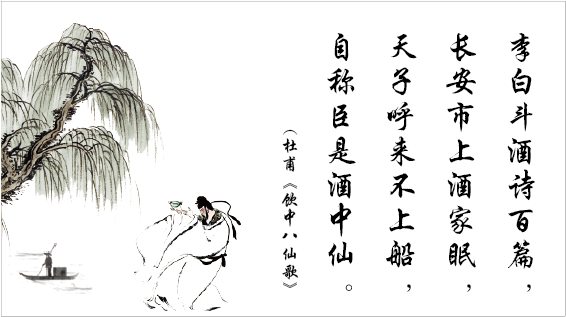 李白斗酒诗百篇，
长安市上酒家眠，
天子呼来不上船，
自称臣是酒中仙。
（杜甫《饮中八仙歌》